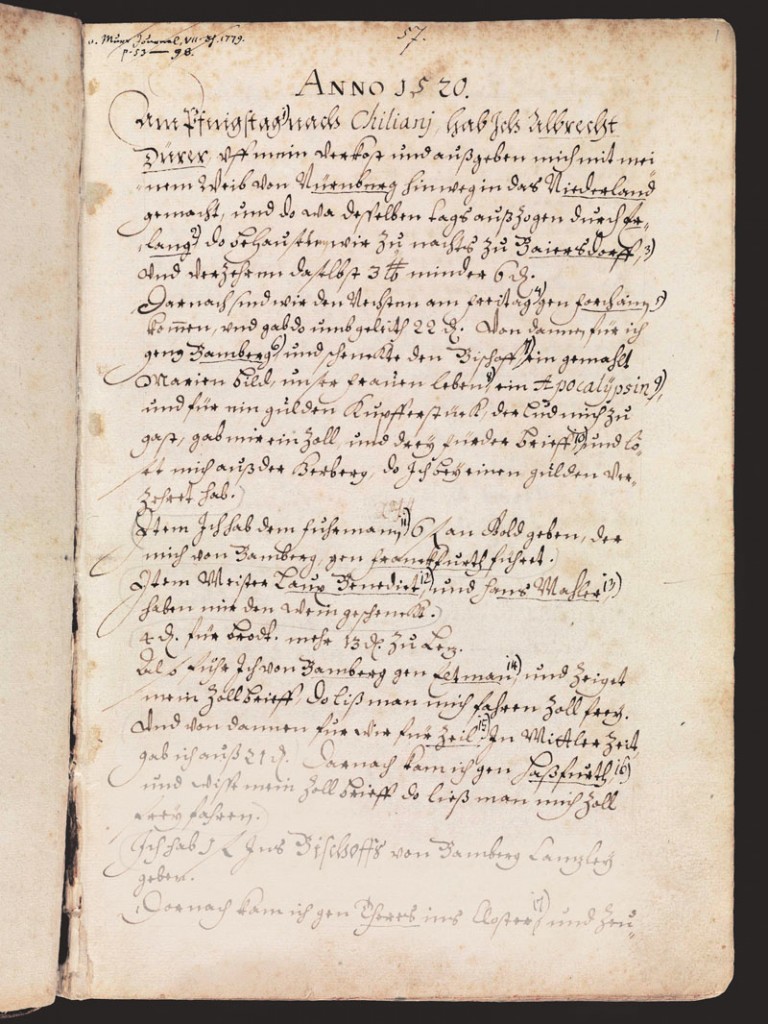 v. Murr Journal. VII. Th. 1779.
p. 53 — 98.
57.
1
ANNO 1520.
Am Pfingstag 1) nach Chilianj, hab Jch Albrecht
Dürer, vff mein verkost und außgeben mich mit mei
nem Weib von Nürnberg hinweg in das Niederland
gemacht, und do wa desselben tags außzogen durch Er-
lang 2) do behausten wir zu nachts zu Baiersdorff, 3)
und verzehrnn daselbst 3 ℔ minder 6 ₰.
Darnach sind wir den Nechstnn am freitag 4) gen forchaim 5)
kommen, vnd gab do umb geleith 22 ₰. Von dannen für ich
geng Bamberg 6) und schenckte den Bischoff 7) ein gemahlt
Marien bild, unser frauen leben 8) ein Apocalÿpsin 9),
und für ein gulden Kupfferstuck, der lud mich zu
gast, gab mir ein Zoll, und dreÿ fürder brieff 10), und lö-
st mich auß der Herberg, do Jch beÿ einen gulden ver-
zehret hab.
Jtem Jch hab dem fuhrmann 11) 6 f an Gold geben, der
mich von Bamberg, gen franckfurth führet.
Jtem Meister Laux Benedict 12), und Hans Mahler 13)
haben mir den wein geschenckt.
4 ₰. für brodt. mehr 13 ₰. zu Lez.
Also fuhr Jch von Bamberg gen Eltman 14) und zeiget
mein Zollbrieff, do liß man mich fahren Zoll freÿ.
Und von dannen fur wir für Zeil 15). Jn Mittler Zeit
gab ich auß 21 ₰. Darnach kam ich gen Haßfurth 16)
und wiss mein Zoll brieff do ließ man mich Zoll
freÿ fahren.
Jch hab 1 f Jns Bischoffs von Bamberg Canzleÿ
geben.
Darnach kam ich gen Theres ins Closter 17) und zeu-